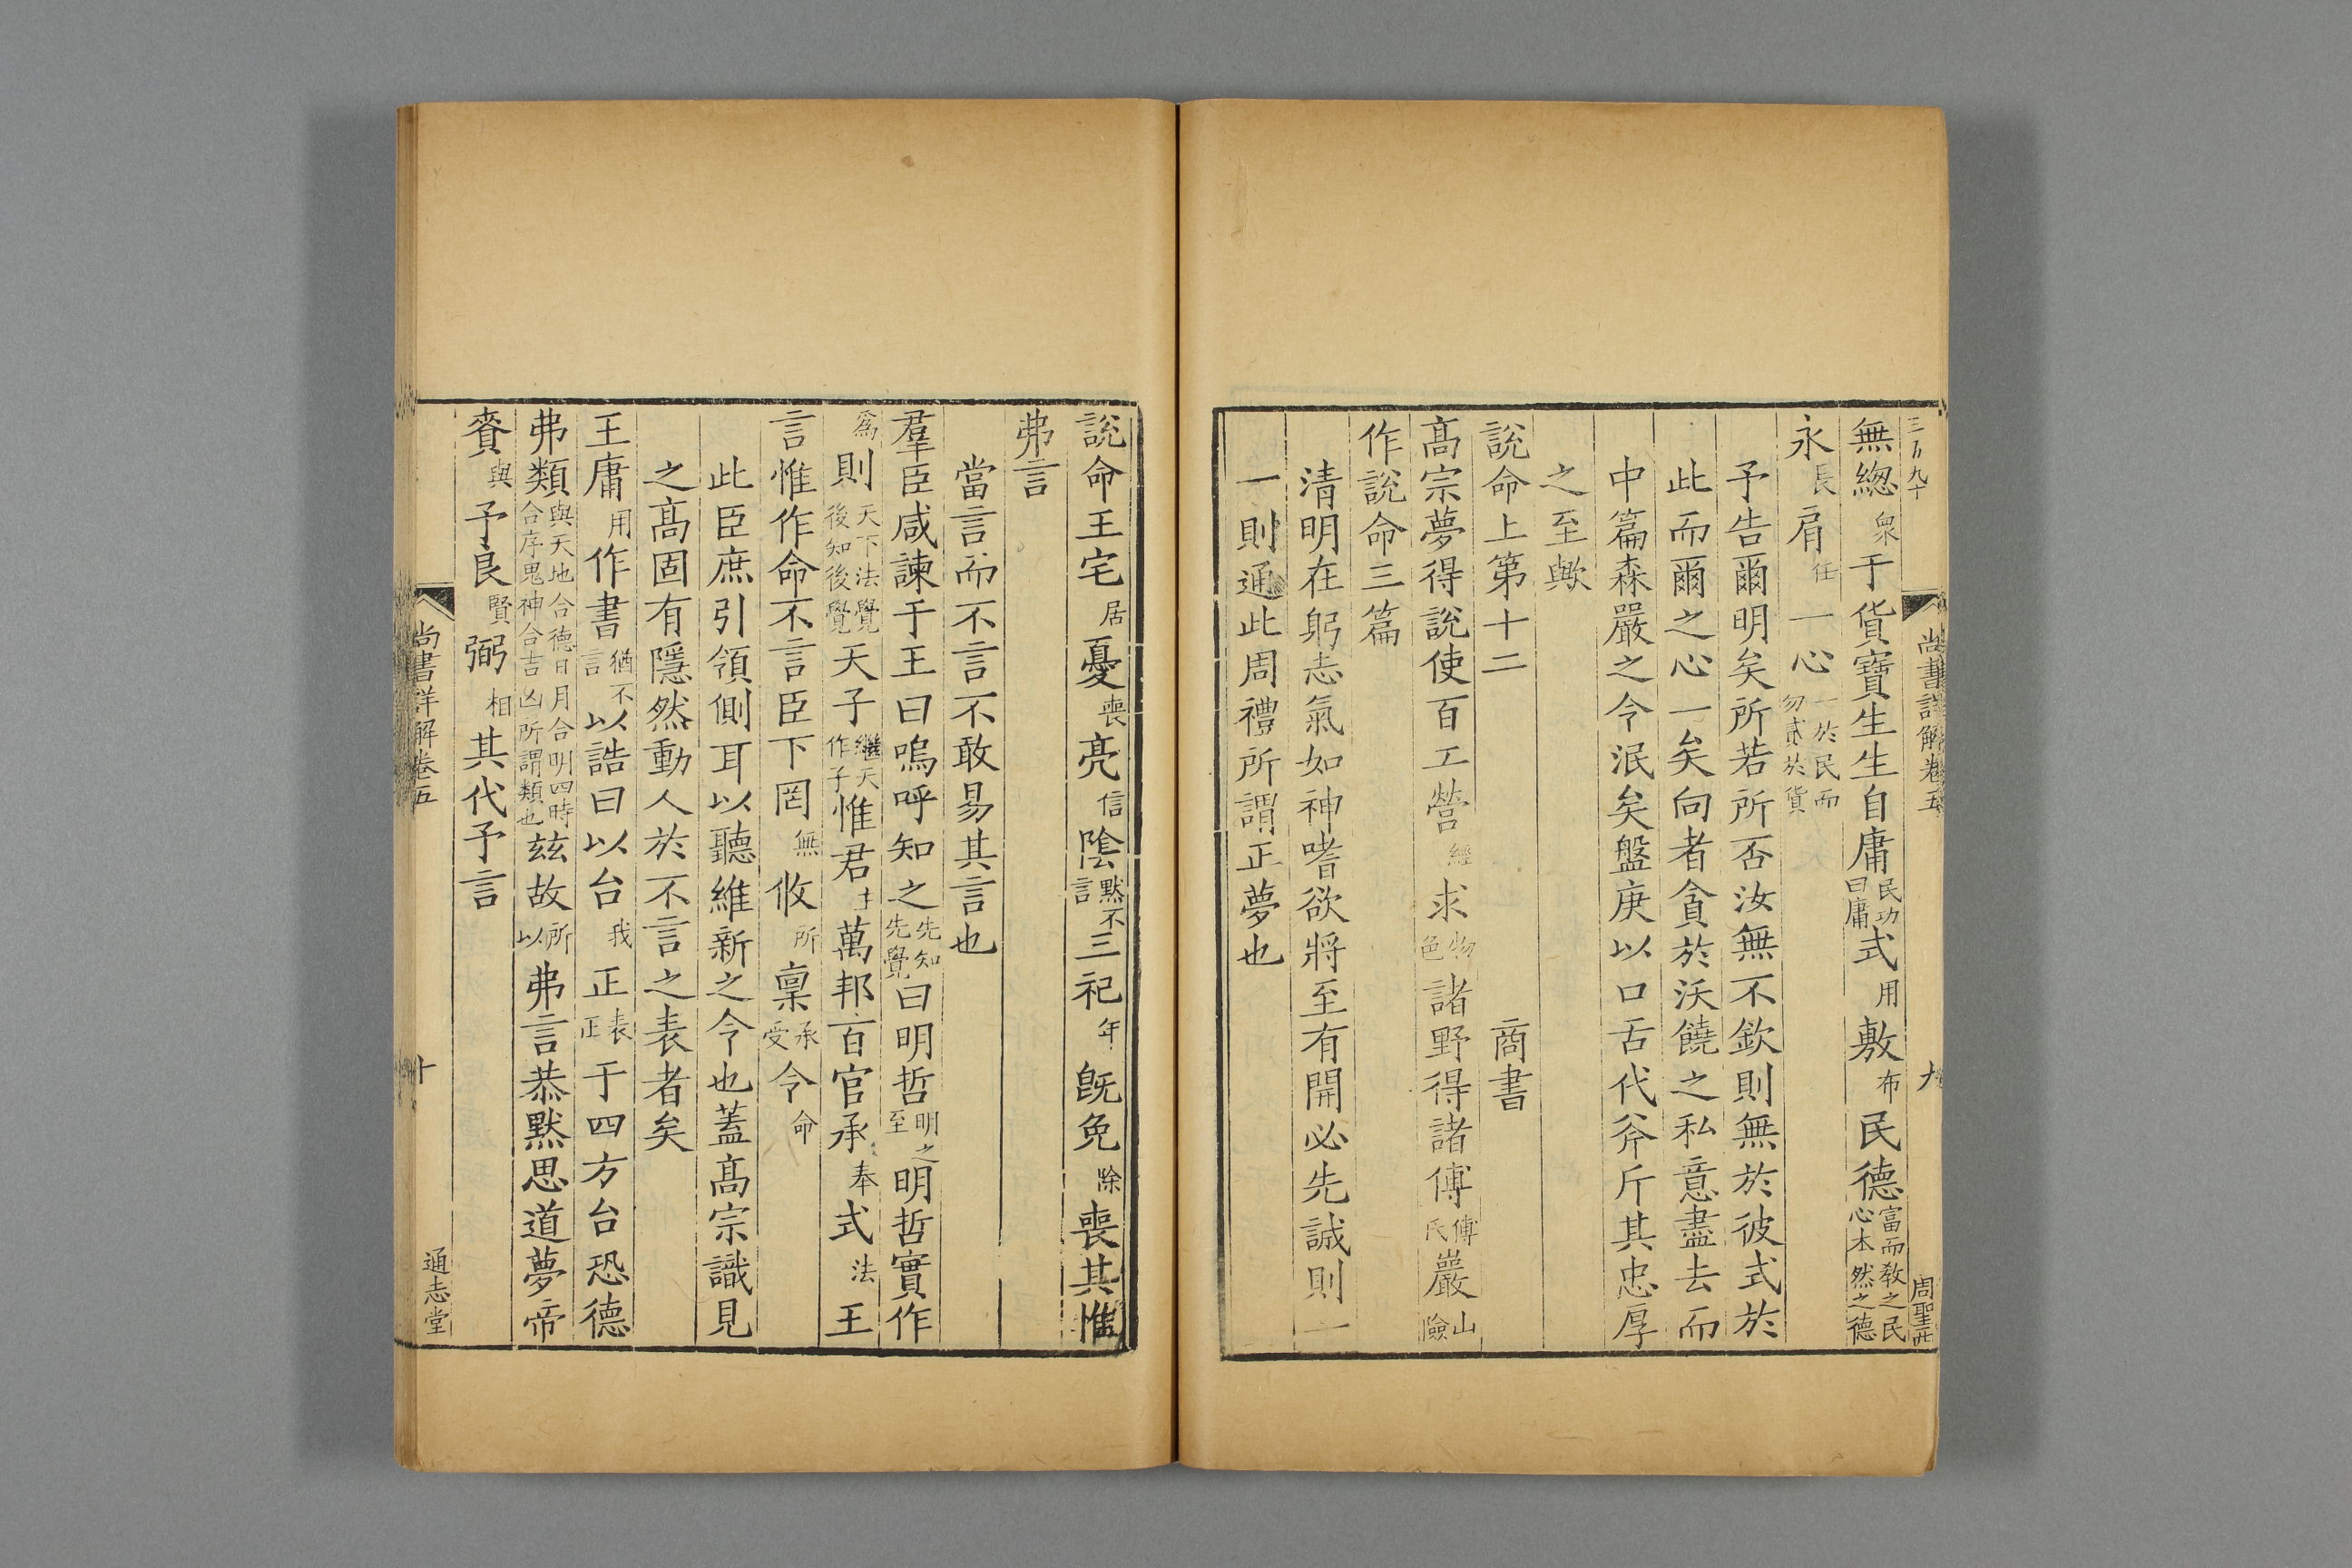 三百九十 尚書詳解卷五 九 周聖
無緫衆于貨寶生生自庸民功曰庸式用敷布民德富而敎之民心本然之德
永長肩任一心一於民而勿貳於貨
予告爾明矣所若所否汝無不欽則無於彼式於
此而爾之心一矣向者貪於沃饒之私意盡去而
中篇森嚴之令泯矣盤庚以口舌代斧斤其忠厚
之至歟
說命上第十二 商書
高宗夢得說使百工營經求物色諸野得諸傅傅氏巖山險
作說命三篇
淸明在躬志氣如神嗜欲將至有開必先誠則一
一則通此周禮所謂正夢也
說命王宅居憂喪亮信陰默不言三祀年旣免除喪其惟
弗言
當言而不言不敢易其言也
羣臣咸諫于王曰嗚呼知之先知先覺曰明哲明之至明哲實作
爲則天下法覺後知後覺天子繼天作子惟君主萬邦百官承奉式法王
言惟作命不言臣下罔無攸所稟承受令命
此臣庶引領側耳以聽維新之令也蓋高宗識見
之高固有隱然動人於不言之表者矣
王庸用作書猶不言以誥曰以台我正表正于四方台恐德
弗類與天地合德日月合明四時合序鬼神合吉凶所謂類也兹故所以弗言恭默思道夢帝
賚與予良賢弼相其代予言
尚書詳解卷五 十 通志堂